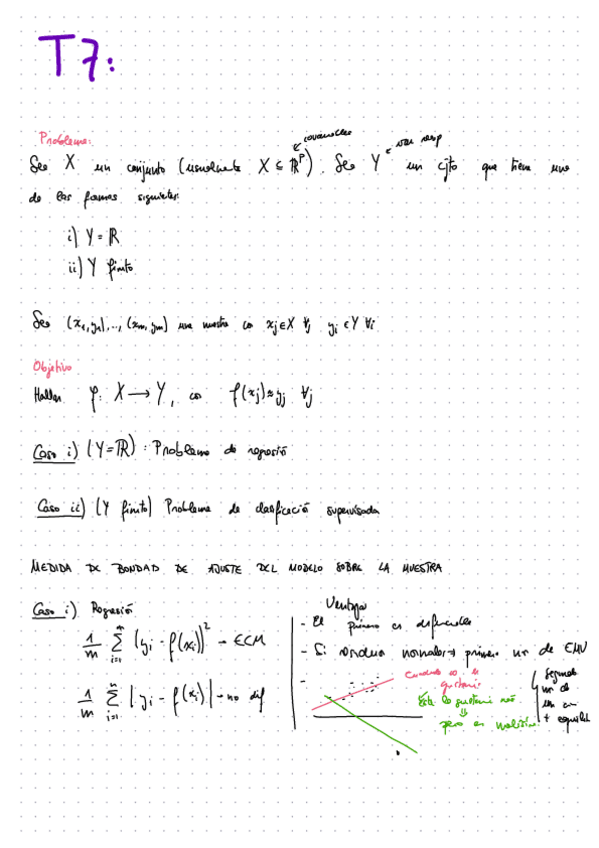 T7:
Problema:
covariables
var resp
Sea X un conjunto (usualmente X ⊆ ℝᵖ). Sea Y un cjto que tiene una
de las formas siguientes:
i) Y = ℝ
ii) Y finito
Sea (x₁,y₁),..., (xₘ,yₘ) una muestra con xⱼ∈X ∀j yᵢ∈Y ∀i
Objetivo
Hallar f: X → Y, con f(xⱼ)≈yⱼ ∀j
Caso i) (Y=ℝ): Problema de regresión
Caso ii) (Y finito) Problema de clasificación supervisada
MEDIDA DE BONDAD DE AJUSTE DEL MODELO SOBRE LA MUESTRA
Caso i) Regresión
1/m Σᵢ₌₁ᵐ (yᵢ - f(xᵢ))² → ECM
1/m Σᵢ₌₁ⁿ |yᵢ - f(xᵢ)| → no dif
Ventajas
- El primero es diferenciable
- Si residuos normales → primero de EMV
-
gustaría
Esta la gustaría más
pero es
Segundo
+ equilib